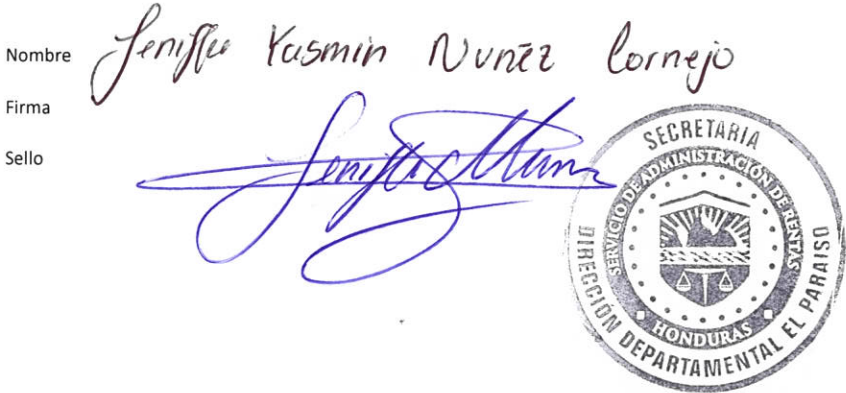 Nombre Jeniffer Yasmin Nuñez Cornejo
Firma Jeniffer Nun
Sello
SECRETARIA
SERVICIO DE ADMINISTRACIÓN DE RENTAS
HONDURAS
DIRECCIÓN DEPARTAMENTAL EL PARAISO